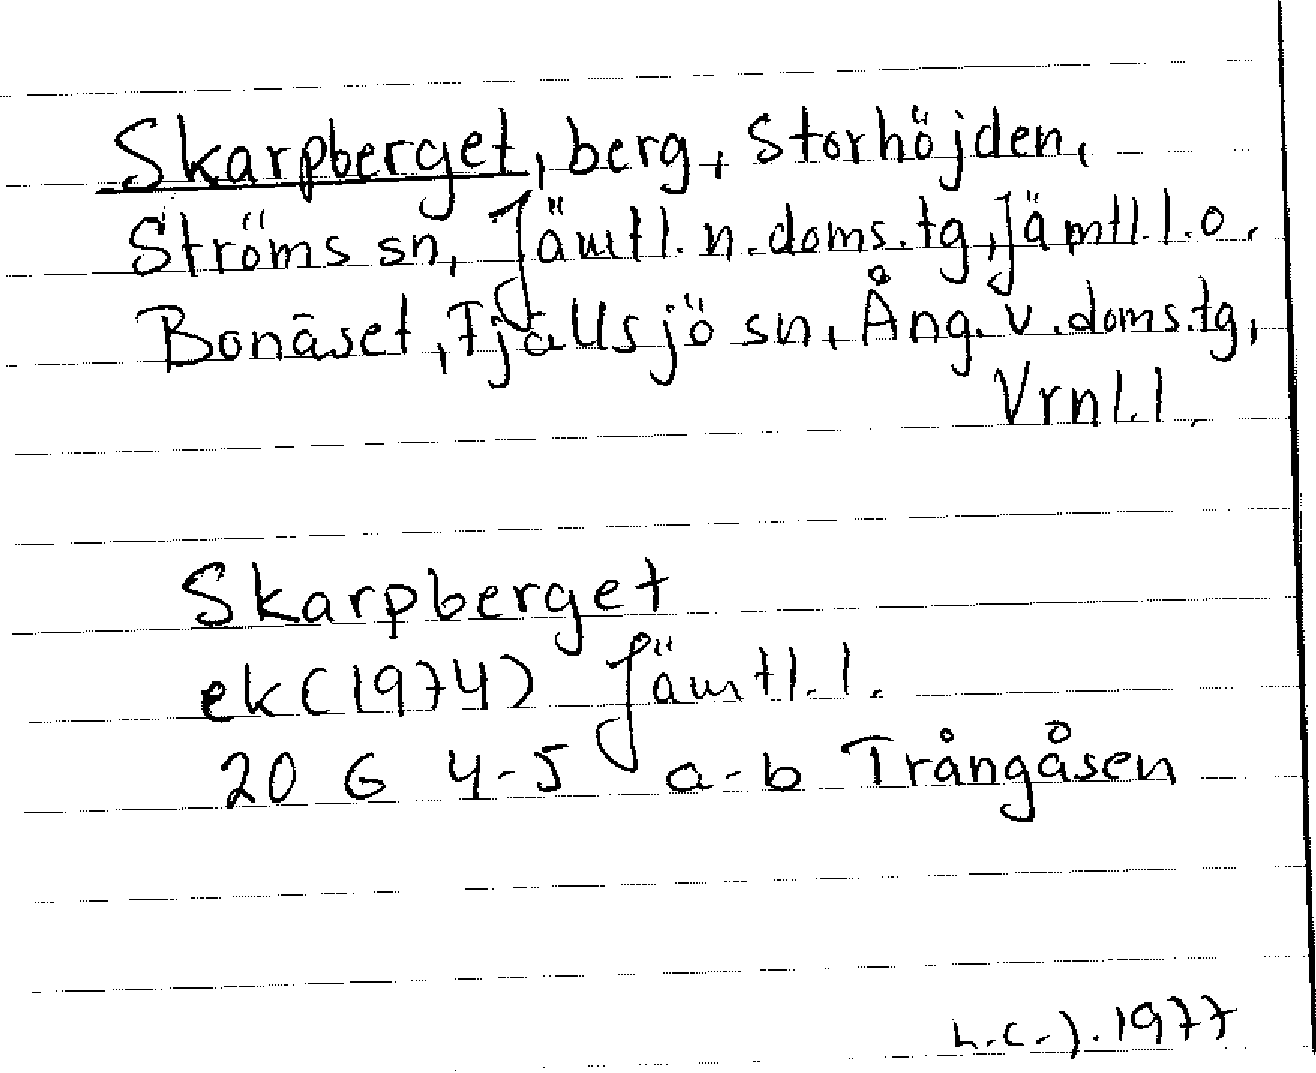 Skarpberget, berg, Storhöjden,
Ströms sn, Jämtl. n. doms.tg, Jämtl. l. o.
Bonäset, Fjällsjö sn, Ång. v. doms.tg,
Vrnl. l.
Skarpberget
ek (1974) Jämtl. l.
20 G 4-5 a-b Trångåsen
1977